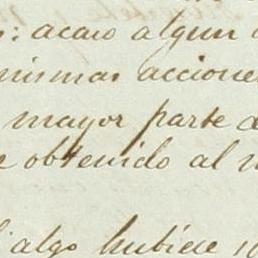 : acaso algun
mismas accione
mayor parte d
obtenido al
algo hubiese